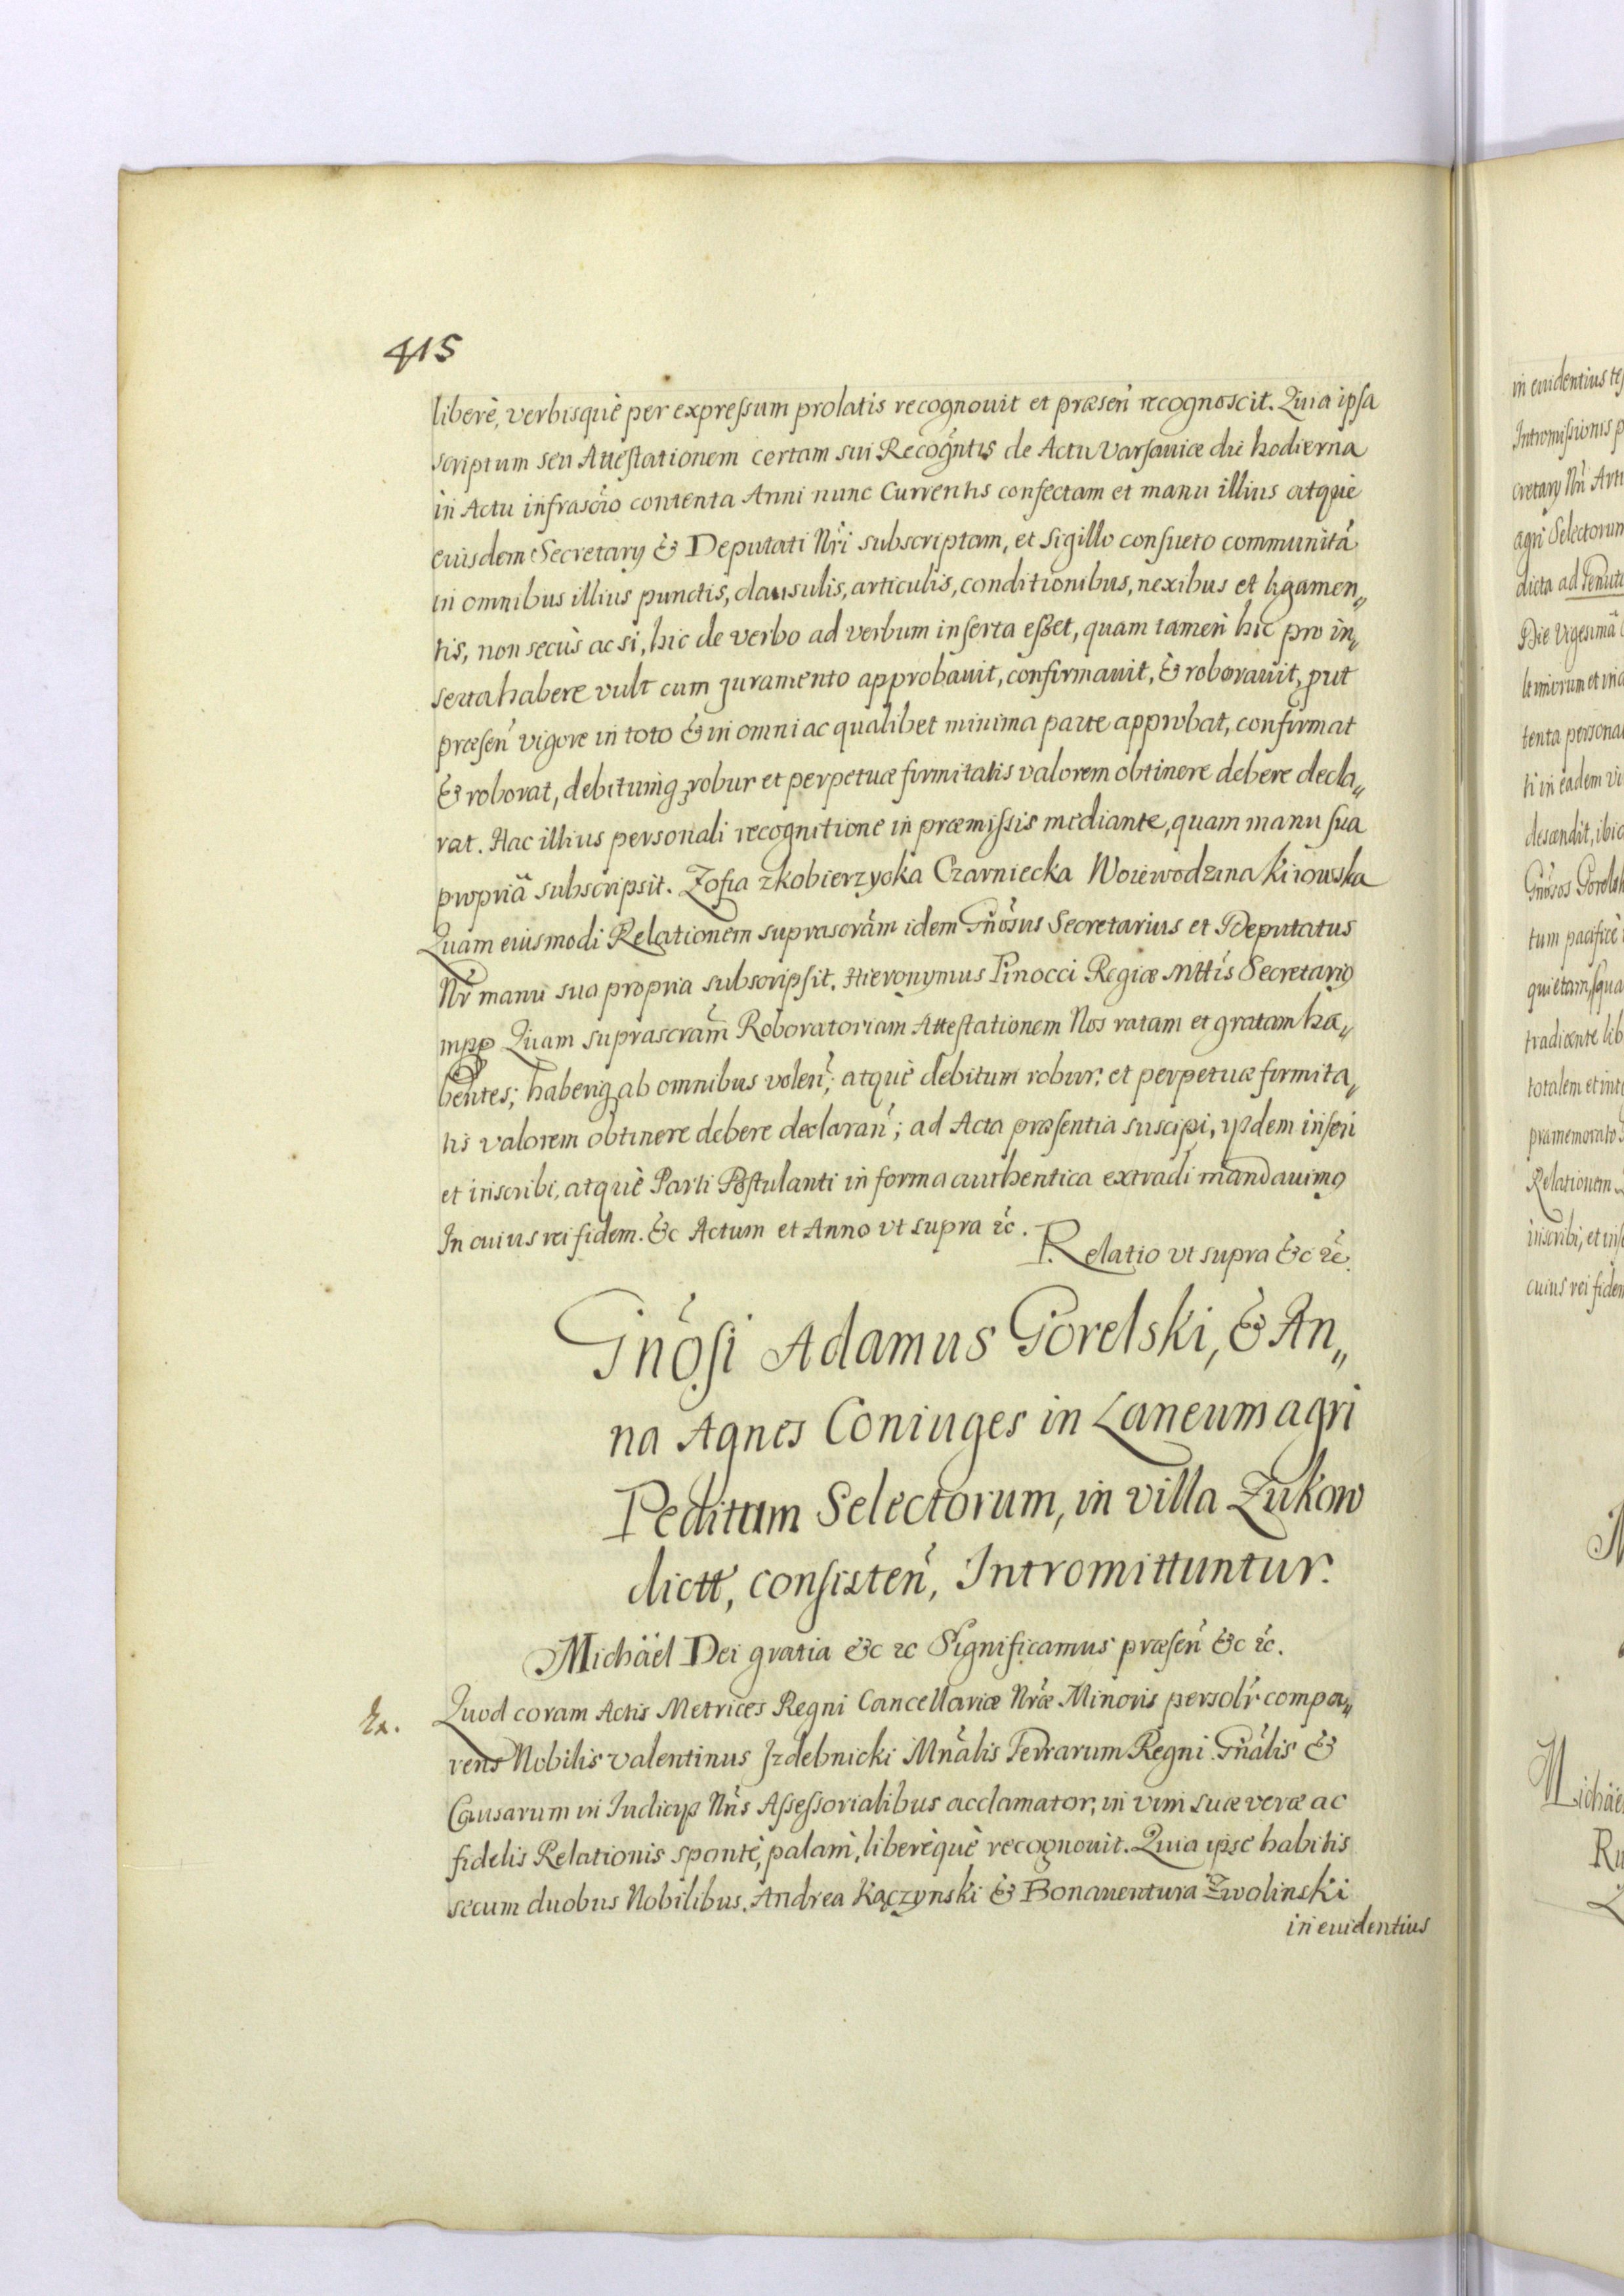 415
liberè, verbisquè per expressum prolatis recognouit et præsen̄ recognoscit. Quia ipsa
scriptum seu Attestationem certam sui Recogn̄tis de Actu Varsauiæ die hodierna
in Actu infrascr̄o contenta Anni nunc Currentis confectam et manu illius atque
eiusdem Secretarÿ & Deputati Nr̄i subscriptam, et Sigillo consueto communitā
in omnibus illius punctis, clausulis, articulis, conditionibus, nexibus et ligamen„
tis, non secùs ac si, hic de verbo ad verbum inserta esset, quam tamen hic pro in„
serta habere vult cum juramento approbauit, confirmauit, & roborauit, put
præsen̄ vigore in toto & in omni ac qualibet minima parte approbat, confirmat
& roborat, debitumq; robur et perpetuæ firmitatis valorem obtinere debere decla„
rat. Hac illius personali recognitione in præmissis mediante, quam manu sua
propriâ subscripsit. Zofia zkobierzycka Czarniecka Woiewodzina Kiiowska
Quam eiusmodi Relationem suprascrām idem Gn̄osus Secretarius et Deputatus
Nr̄ manu sua propria subscripsit. Hieronymus Pinocci Regiæ Mttis Secretari9
mpp Quam suprascrām Roboratoriam Attestationem Nos ratam et gratam ha„
bentes; haberiq; ab omnibus volen̄; atquè debitum robur, et perpetuæ firmita„
tis valorem obtinere debere declaran̄; ad Acta præsentia suscipi, ÿsdem inseri
et inscribi, atquè Parti Postulanti in forma authentica extradi mandauim9
In cuius rei fidem. &c Actum et Anno vt supra &c.
Relatio vt supra &c &c.
Gn̄osi Adamus Gorelski, & An„
na Agnes Coniuges in Laneum agri
Peditum Selectorum, in villa Zukow
dictt, consisten̄, Intromittuntur.
Michäel Dei gratia &c &c Significamus præsen̄ &c &c.
Quod coram Actis Metrices Regni Cancellariæ Nr̄æ Minoris persolr̄ compa„
rens Nobilis Valentinus Jzdebnicki Mn̄alis Terrarum Regni Gn̄alis &
Causarum in Iudicÿs Nr̄is Assessorialibus acclamator, in vim suæ veræ ac
fidelis Relationis spontè, palam, liberèquè recognouit. Quia ipse habitis
secum duobus Nobilibus. Andrea Kączynski & Bonauentura Zwolinski
in euidentius